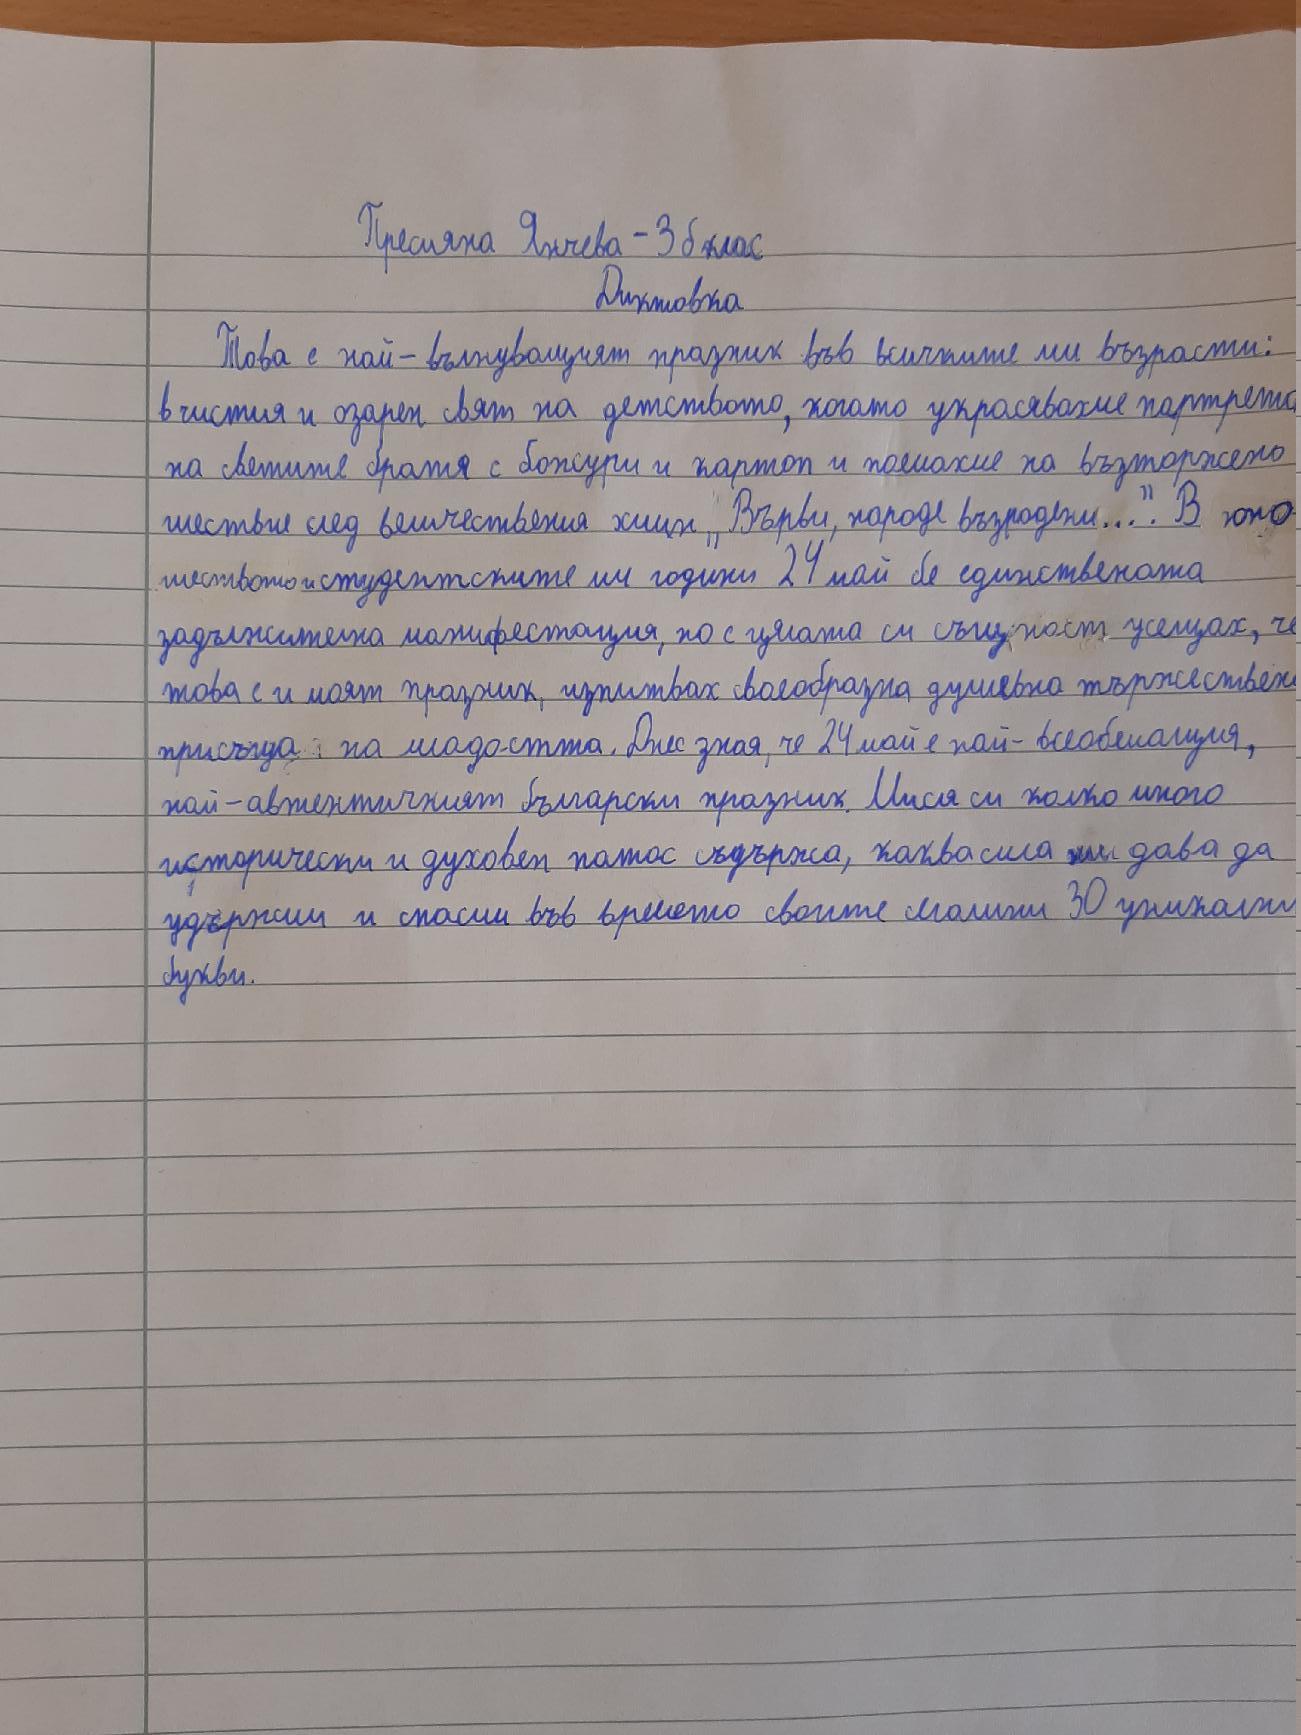 Пресияна Янчева - 3 б клас
Диктовка
Това е най-вълнуващият празник във всичките ми възрасти:
в чистия и озарен свят на детството, когато украсявахме партрета
на светите братя с божури и картон и поемахме на възторжено
шествие след величествения химн „Върви, народе възродени...". В юно-
шеството и студентските ми години 24 май бе единствената
задължителна манифестация, но с цялата си същност усещах, че
това е и моят празник, изпитвах своеобразна душевна тържествен
присъща на младостта. Днес зная, че 24 май е най-всеобемащия,
най-автентичният български празник. Мисля си колко много
исторически и духовен патос съдържа, каква сила ми дава да
удържим и спасим във времето своите смалини 30 уникални
букви.